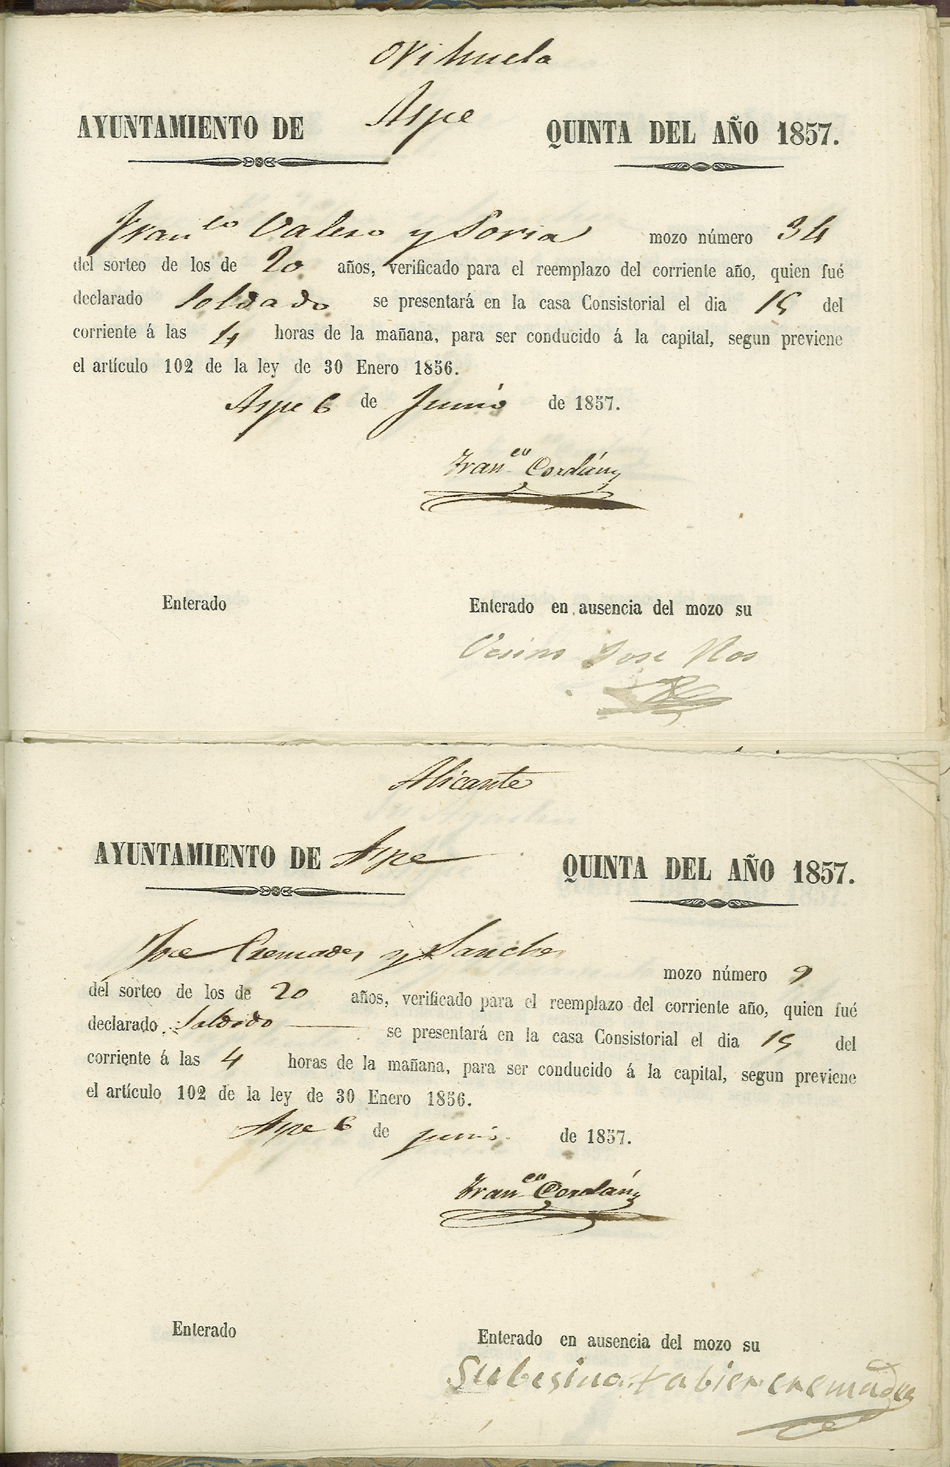 Orihuela
AYUNTAMIENTO DE Aspe QUINTA DEL AÑO 1857.
Fran.co Valero y Soria mozo número 34
del sorteo de los de 20 años, verificado para el reemplazo del corriente año, quien fué
declarado Soldado se presentará en la casa Consistorial el dia 15 del
corriente á las 4 horas de la mañana, para ser conducido á la capital, segun previene
el artículo 102 de la ley de 30 Enero 1856.
Aspe 6 de Junio de 1857.
Fran.co Cerdán
Enterado Enterado en ausencia del mozo su
Vesino Jose Ros
Alicante
AYUNTAMIENTO DE Aspe QUINTA DEL AÑO 1857.
Jose Cremades y Sanches mozo número 9
del sorteo de los de 20 años, verificado para el reemplazo del corriente año, quien fué
declarado Soldado se presentará en la casa Consistorial el dia 15 del
corriente á las 4 horas de la mañana, para ser conducido á la capital, segun previene
el artículo 102 de la ley de 30 Enero 1856.
Aspe 6 de junio de 1857.
Fran.co Cerdán
Enterado Enterado en ausencia del mozo su
Su besino xabier cremades